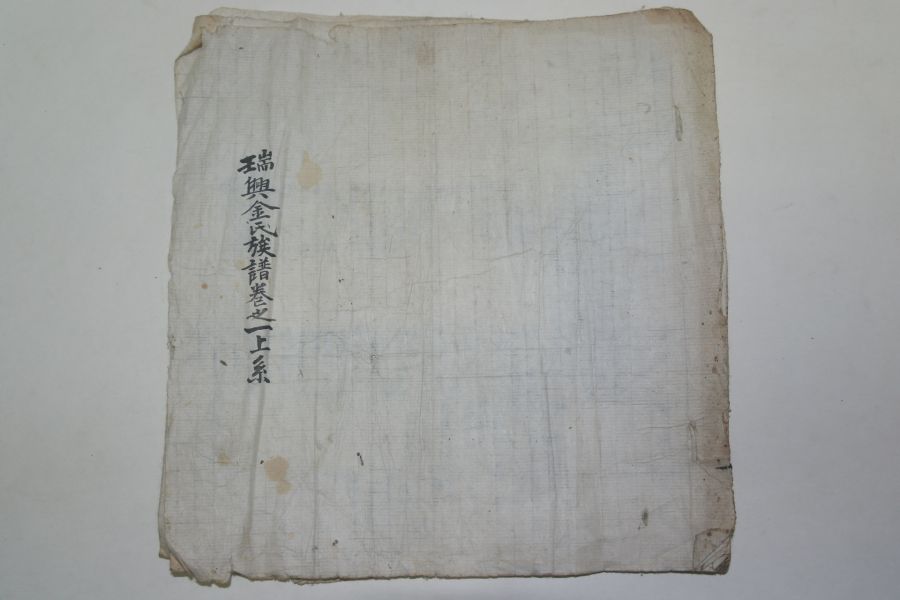 瑞興金氏族譜卷之一上系